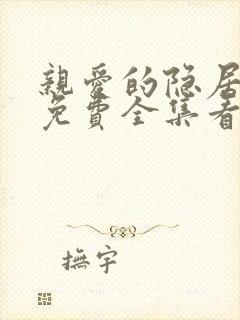 親愛的隐居
免費全集看
撫宇